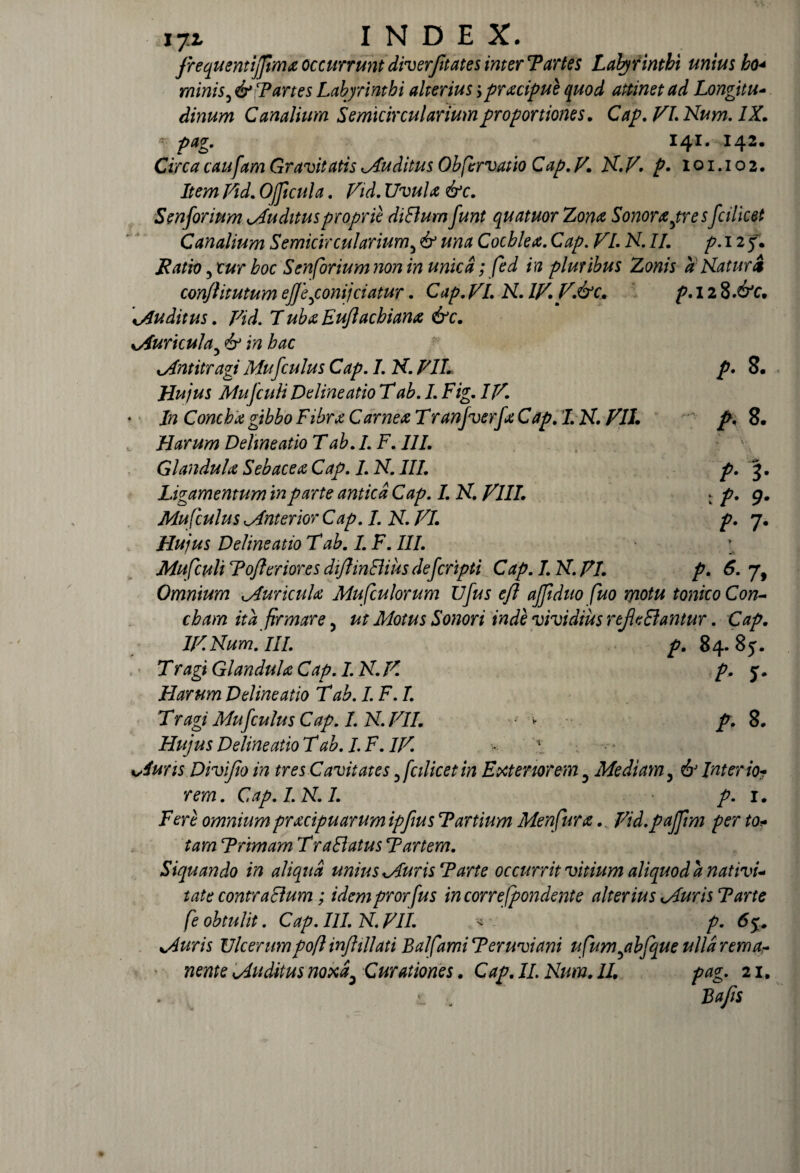 172 INDEX.
frequentiſſimæ occurrunt diverſitates inter Partes Labyrinthi unius ho-
minis, & Partes Labyrinthi alterius; præcipuè quod attinet ad Longitu-
dinum Canalium Semicircularium proportiones. Cap. VI. Num. IX.
pag. 141. 142.
Circa cauſam Gravitatis Auditus Obſervatio Cap. V. N.V. p. 101.102.
Item Vid. Oſſicula. Vid. Uvulæ &c.
Senſorium Auditus propriè dictum ſunt quatuor Zonæ Sonoræ, tres ſcilicet
Canalium Semicircularium, & una Cochleæ. Cap. VI. N. II. p.125.
Ratio, cur hoc Senſorium non in unicâ; ſed in pluribus Zonis à Naturâ
conſtitutum eſſe, conijciatur. Cap. VI. N. IV. V.&c. p.128.&c.
Auditus. Vid. Tubæ Euſtachianæ &c.
Auricula, & in hac
Antitragi Muſculus Cap. I. N. VII. p. 8.
Hujus Muſculi Delineatio Tab. I. Fig. IV.
In Conchæ gibbo Fibræ Carneæ Tranſverſæ Cap. I. N. VII. p. 8.
Harum Delineatio Tab. I. F. III.
Glandulæ Sebaceæ Cap. I. N. III. p. 3.
Ligamentum in parte anticâ Cap. I. N. VIII. p. 9.
Muſculus Anterior Cap. I. N. VI. p. 7.
Hujus Delineatio Tab. I. F. III.
Muſculi Poſteriores diſtinctiùs deſcripti Cap. I. N. VI. p. 6. 7,
Omnium Auriculæ Muſculorum Uſus eſt aſſiduo ſuo motu tonico Con-
cham ità firmare, ut Motus Sonori indè vividiùs reflectantur. Cap.
IV. Num. III. p. 84. 85.
Tragi Glandulæ Cap. I. N. V. p. 5.
Harum Delineatio Tab. I. F. I.
Tragi Muſculus Cap. I. N. VII. p. 8.
Hujus Delineatio Tab. I. F. IV.
Auris Diviſio in tres Cavitates, ſcilicet in Exteriorem, Mediam, & Interio-
rem. Cap. I. N. I. p. 1.
Ferè omnium præcipuarum ipſius Partium Menſuræ. Vid. paſſim per to-
tam Primam Tractatus Partem.
Siquando in aliquâ unius Auris Parte occurrit vitium aliquod à nativi-
tate contractum; idem prorſus in correſpondente alterius Auris Parte
ſe obtulit. Cap. III. N. VII. p. 65.
Auris Ulcerum poſt inſtillati Balſami Peruviani uſum, abſque ullâ rema-
nente Auditus noxâ, Curationes. Cap. II. Num. II. pag. 21.
Baſis